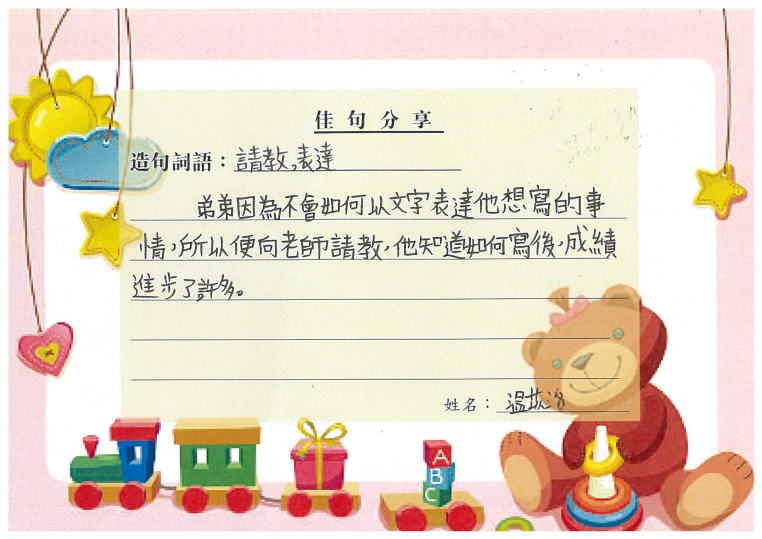 佳句分享
造句詞語：請教，表達
弟弟因為不會如何以文字表達他想寫的事
情，所以便向老師請教，他知道如何寫後，成績
進步了許多。
姓名：溫
A
B
C